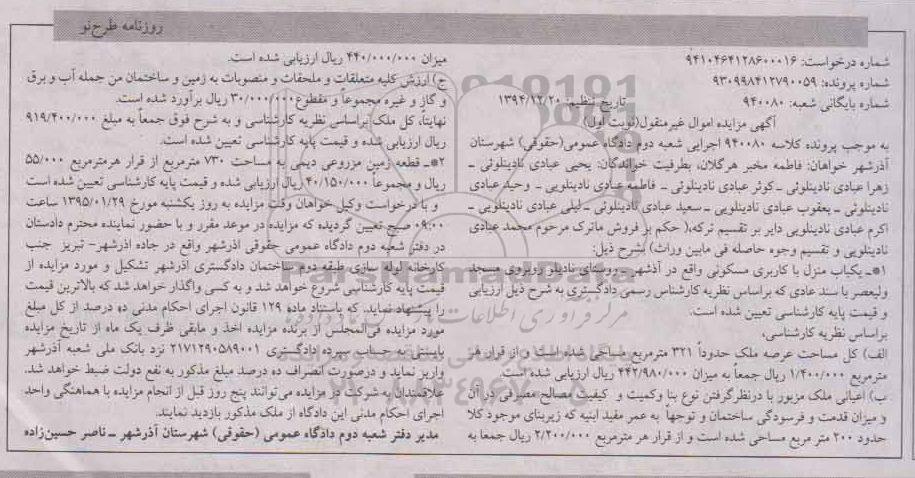 روزنامه طرح‌نو
شماره درخواست: ۹۴۱۰۴۶۴۱۲۸۶۰۰۰۱۶
شماره پرونده: ۹۳۰۹۹۸۴۱۲۷۹۰۰۵۹
شماره بایگانی شعبه: ۹۴۰۰۸۰ تاریخ تنظیم: ۱۳۹۴/۱۲/۲۰
آگهی مزایده اموال غیرمنقول(نوبت اول)
به موجب پرونده کلاسه ۹۴۰۰۸۰ اجرایی شعبه دوم دادگاه عمومی(حقوقی) شهرستان
آذرشهر خواهان: فاطمه مخبر هرگلان، بطرفیت خواندگان: یحیی عبادی نادینلوئی ـ
زهرا عبادی نادینلوئی ـ کوثر عبادی نادینلوئی ـ فاطمه عبادی نادینلویی ـ وحید عبادی
نادینلوئی ـ یعقوب عبادی نادینلویی ـ سعید عبادی نادینلوئی ـ لیلی عبادی نادینلویی ـ
اکرم عبادی نادینلویی دایر بر تقسیم ترکه،( حکم بر فروش ماترک مرحوم محمد عبادی
نادینلویی و تقسیم وجوه حاصله فی مابین وراث) بشرح ذیل:
۱*ـ یکباب منزل با کاربری مسکونی واقع در آذشهر ـ روستای نادیلو روبروی مسجد
ولیعصر با سند عادی که براساس نظریه کارشناس رسمی دادگستری به شرح ذیل ارزیابی
و قیمت پایه کارشناسی تعیین شده است.
براساس نظریه کارشناسی،
الف) کل مساحت عرصه ملک حدوداً ۳۲۱ مترمربع مساحی شده است و از قرار هر
مترمربع ۱/۴۰۰/۰۰۰ ریال جمعاً به میزان ۴۴۲/۹۸۰/۰۰۰ ریال ارزیابی شده است.
ب) اعیانی ملک مزبور با درنظرگرفتن نوع بنا وکمیت و کیفیت مصالح مصرفی در آن
و میزان قدمت و فرسودگی ساختمان و توجهاً به عمر مفید ابنیه که زیربنای موجود کلا
حدود ۲۰۰ متر مربع مساحی شده است و از قرار هر مترمربع ۲/۲۰۰/۰۰۰ ریال جمعا به
میزان ۴۴۰/۰۰۰/۰۰۰ ریال ارزیابی شده است.
ج) ارزش کلیه متعلقات و ملحقات و منصوبات به زمین و ساختمان من جمله آب و برق
و گاز و غیره مجموعاً و مقطوع ۳۰/۰۰۰/۰۰۰ ریال برآورد شده است.
نهایتاً، کل ملک براساس نظریه کارشناسی و به شرح فوق جمعاً به مبلغ ۹۱۹/۴۰۰/۰۰۰
ریال ارزیابی شده و قیمت پایه کارشناسی تعیین شده است.
۲*ـ قطعه زمین مزروعی دیمی به مساحت ۷۳۰ مترمربع از قرار هرمترمربع ۵۵/۰۰۰
ریال و مجموعاً ۴۰/۱۵۰/۰۰۰ ریال ارزیابی شده و قیمت پایه کارشناسی تعیین شده است
و با درخواست وکیل خواهان وقت مزایده به روز یکشنبه مورخ ۱۳۹۵/۰۱/۲۹ ساعت
۰۹:۰۰ صبح تعیین گردیده که مزایده در موعد مقرر و با حضور نماینده محترم دادستان
در دفتر شعبه دوم دادگاه عمومی حقوقی آذرشهر واقع در جاده آذرشهر- تبریز جنب
کارخانه لوله سازی طبقه دوم ساختمان دادگستری آذرشهر تشکیل و مورد مزایده از
قیمت پایه کارشناسی شروع خواهد شد و به کسی واگذار خواهد شد که بالاترین قیمت
را پیشنهاد نماید، که باستناد ماده ۱۲۹ قانون اجرای احکام مدنی ده درصد از کل مبلغ
مورد مزایده فی‌المجلس از برنده مزایده اخذ و مابقی ظرف یک ماه از تاریخ مزایده
بایستی به حساب سپرده دادگستری ۲۱۷۱۲۹۰۵۸۹۰۰۱ نزد بانک ملی شعبه آذرشهر
واریز نماید و درصورت انصراف ده درصد مبلغ مذکور به نفع دولت ضبط خواهد شد.
علاقمندان به شرکت در مزایده می‌توانند پنج روز قبل از انجام مزایده با هماهنگی واحد
اجرای احکام مدنی این دادگاه از ملک مذکور بازدید نمایند.
مدیر دفتر شعبه دوم دادگاه عمومی (حقوقی) شهرستان آذرشهر ـ ناصر حسین‌زاده